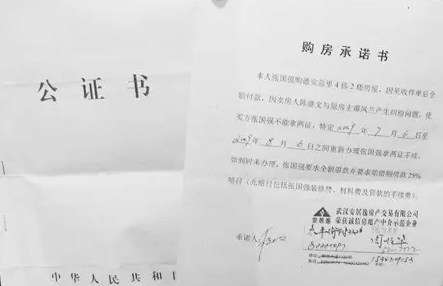 公证书
中华人民共和
购房承诺书
本人张国强购德安总里4栋2楼房屋，因见收件单后全
额付款，因卖房人陈盛文与原房主谭凤兰产生纠纷问题，使
买方张国强不能拿两证，特定2009年7月6日至
2009年8月6日之间重新办理张国强拿两证手续，
如到时未办理，张国强要求全额退款并要求赔偿购房款25%
赔付（此赔付包括张国强装修费、材料费及贷款的手续费）。
承诺人：
武汉安居逸房产交易有限公司
荣获诚信房地产中介示范企业